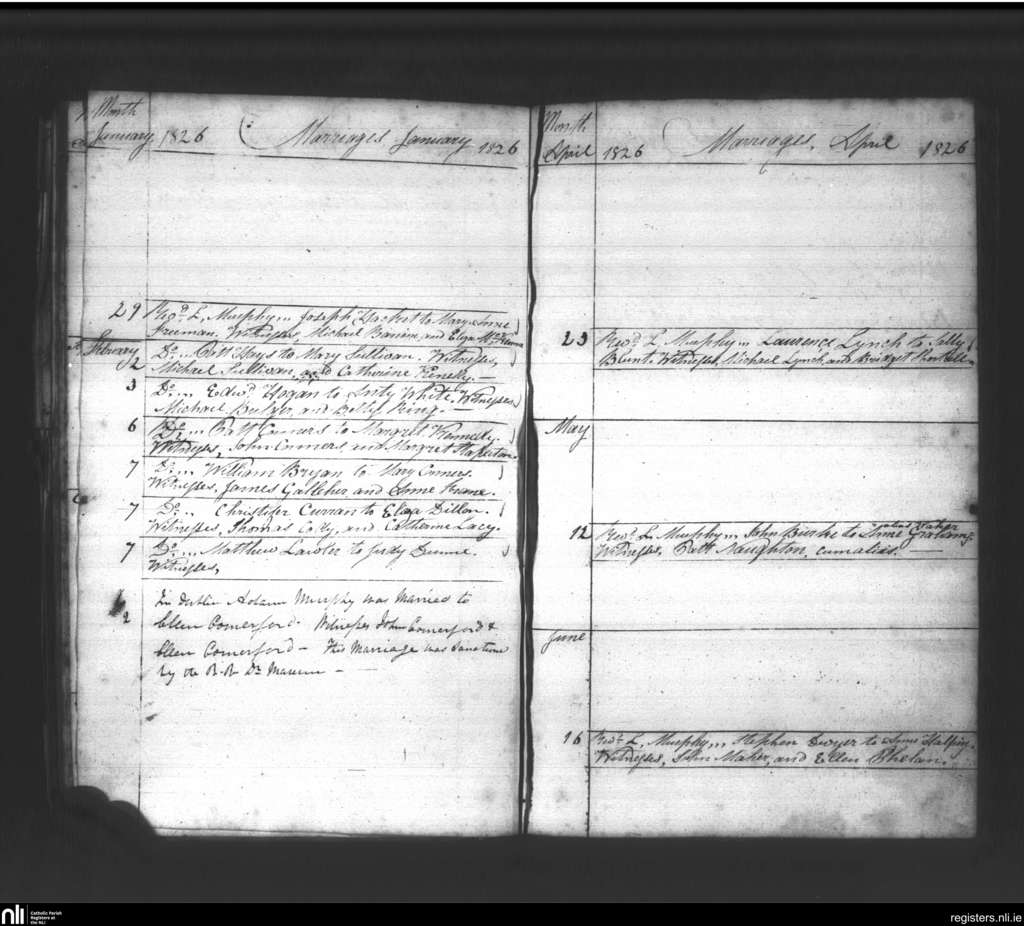 Month
January 1826 Marriages January 1826
29 Revd. L. Murphy... Joseph Hacket to Mary Anne
Freeman. Witnesses, Michael and Eliza
February
2 Do... Patt Hays to Mary Sullivan. Witnesses,
Michael Sullivan, and Catherine
3 Do... Edwd. Hogan to Judy White. Witnesses,
Michael and Betty King.
6 Do... Patt Conners to Margret Kennedy.
Witnesses, John Conners, and Margret Stapleton.
7 Do... William Bryan to Mary Conners.
Witnesses, James Galleher and Anne
7 Do... Christifer Curran to Eliza Dillon.
Witnesses, Thomas and Catherine Lacy.
7 Do... Matthew Lawler to Judy Dunne.
Witnesses,
2 In Dublin Adam Murphy was Married to
Ellen Comerford. Witnesses John Comerford &
Ellen Comerford - This Marriage was
by the R.R Dr.
Month
April 1826 Marriages, April 1826
23 Revd. L. Murphy... Lawrence Lynch to Sally
Blunt. Witnesses, Michael Lynch, and Bridget
May
12 Revd. L. Murphy... John Burke to Anne alias Graham.
Witnesses, Patt Naughton,
June
16 Revd. L. Murphy... Stephen Dwyer to Anne Halfpin.
Witnesses, John Maher, and Ellen Phelan.
nli
Catholic Parish
Registers at
the NLI
registers.nli.ie